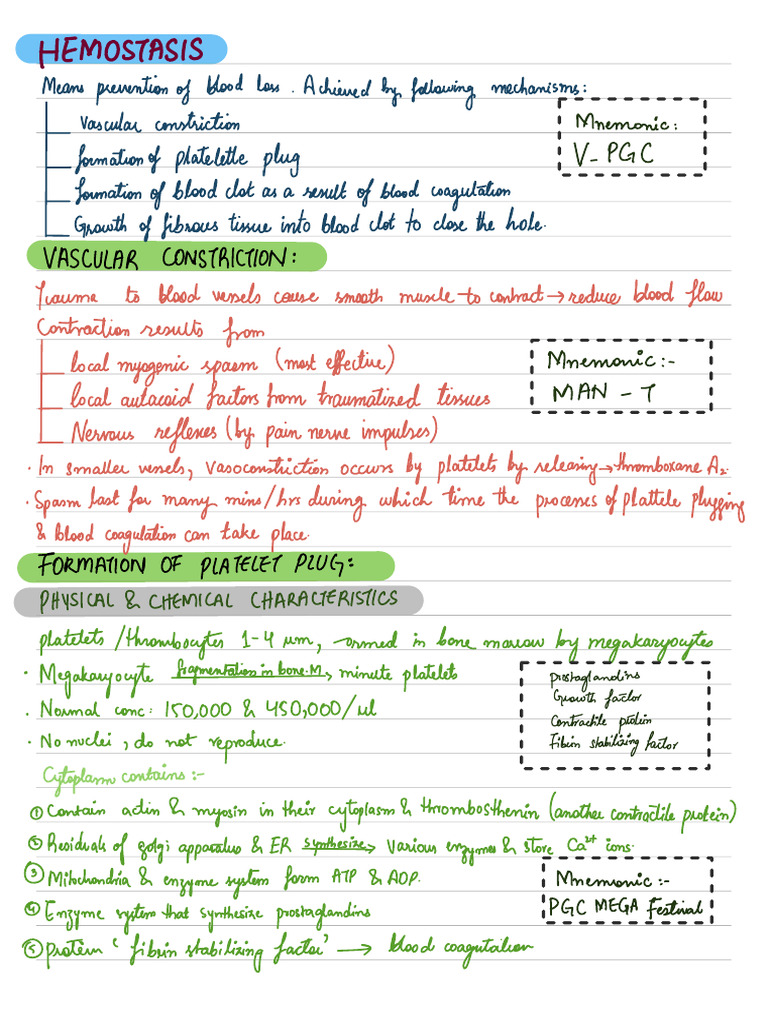 HEMOSTASIS
Means prevention of blood loss. Achieved by following mechanisms:
Vascular constriction
formation of platelette plug
formation of blood clot as a result of blood coagulation
Growth of fibrous tissue into blood clot to close the hole.
Mnemonic:
V-PGC
VASCULAR CONSTRICTION:
Trauma to blood vessels cause smooth muscle to contract → reduce blood flow
Contraction results from
local myogenic spasm (most effective)
local autacoid factors from traumatized tissues
Nervous reflexes (by pain nerve impulses)
Mnemonic:-
MAN - T
· In smaller vessels, vasoconstriction occurs by platelets by releasing → thromboxane A₂.
· Spasm last for many mins/hrs during which time the processes of plattele plugging
& blood coagulation can take place.
FORMATION OF PLATELET PLUG:
PHYSICAL & CHEMICAL CHARACTERISTICS
platelets/thrombocytes 1-4 µm, ormed in bone marrow by megakaryocytes
· Megakaryocyte fragmentation in bone.M → minute platelets
· Normal conc: 150,000 & 450,000/ul
· No nuclei, do not reproduce.
prostaglandins
Growth factor
Contractile protein
Fibrin stabilizing factor
Cytoplasm contains:-
① Contain actin & myosin in their cytoplasm & thrombosthenin (another contractile protein)
② Residuals of golgi apparatus & ER synthesize → various enzymes & store Ca²⁺ ions.
③ Mitochondria & enzyme system form ATP & ADP.
④ Enzyme system that synthesize prostaglandins
⑤ protein 'fibrin stabilizing factor' → blood coagutation
Mnemonic:-
PGC MEGA Festival